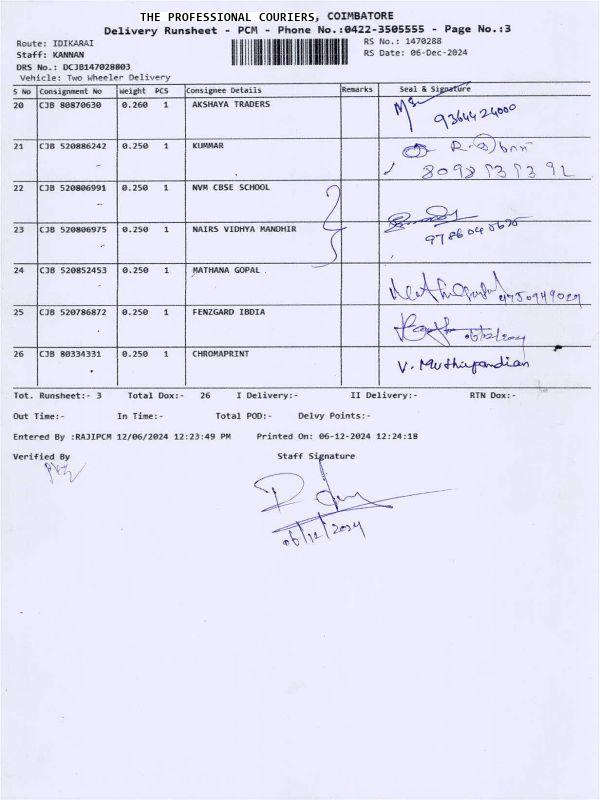 THE PROFESSIONAL COURIERS, COIMBATORE
Delivery Runsheet - PCM - Phone No.:0422-3505555 - Page No.:3
Route: IDIKARAI
RS No.: 1470288
Staff: KANNAN
RS Date: 06-Dec-2024
DRS No.: DCJB147028803
Vehicle: Two Wheeler Delivery
S No Consignment No Weight PCS Consignee Details Remarks Seal & Signature
20 CJB 80870630 0.260 1 AKSHAYA TRADERS
9364424000
21 CJB 520886242 0.250 1 KUMMAR
22 CJB 520806991 0.250 1 NVM CBSE SCHOOL
23 CJB 520806975 0.250 1 NAIRS VIDHYA MANDHIR
24 CJB 520852453 0.250 1 MATHANA GOPAL
25 CJB 520786872 0.250 1 FENZGARD IBDIA
06/12/2024
26 CJB 80334331 0.250 1 CHROMAPRINT V. Muthupandian
Tot. Runsheet:- 3 Total Dox:- 26 I Delivery:- II Delivery:- RTN Dox:-
Out Time:- In Time:- Total POD:- Delvy Points:-
Entered By :RAJIPCM 12/06/2024 12:23:49 PM Printed On: 06-12-2024 12:24:18
Verified By Staff Signature
06/12/2024